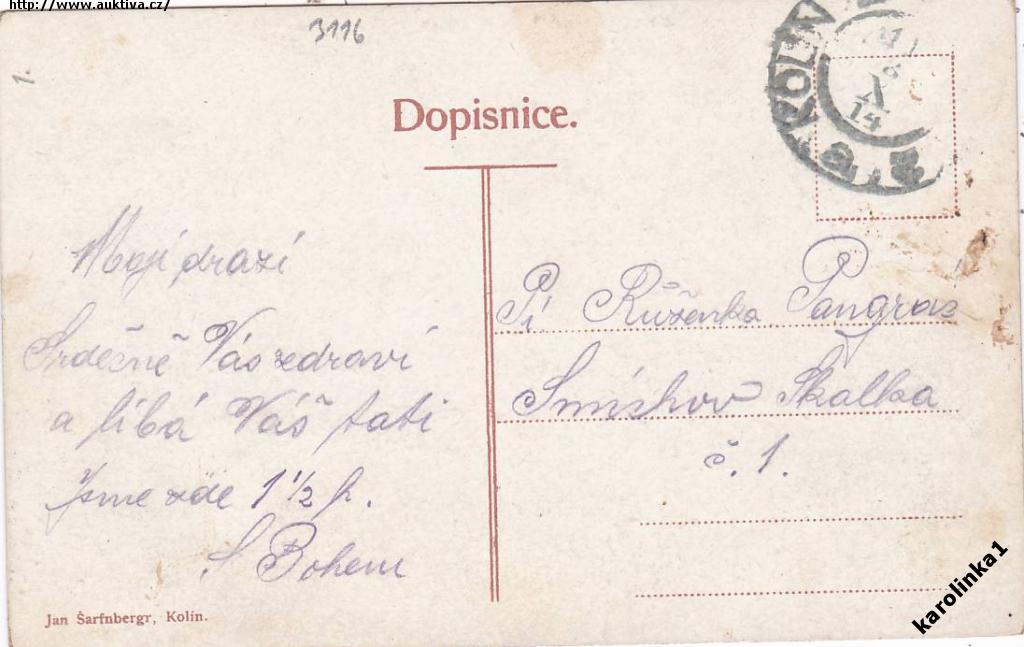 http://www.auktiva.cz/
3116
1.
KOLÍN
X
14
Dopisnice.
Moji drazí
Srdečně Vás zdraví
a líbá Váš tati
Jsme zde 1 1/2 h.
S Bohem
Pí Růženka Pangrác
Smíchov Skalka
č. 1.
Jan Šarfnbergr, Kolín.
karolinka1